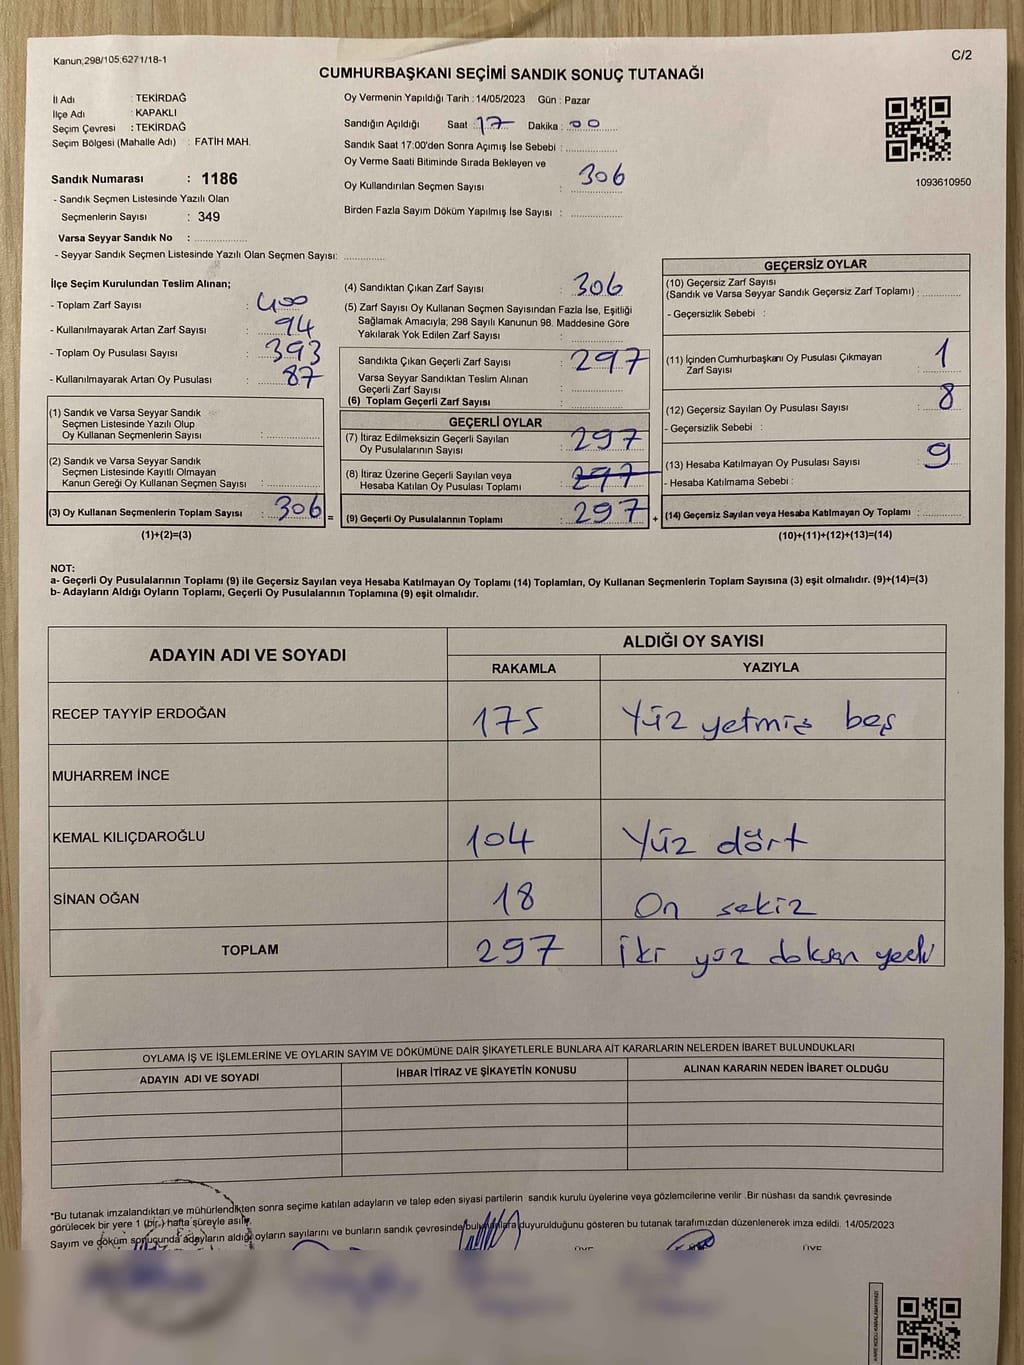 Kanun;298/105;6271/18-1
C/2
CUMHURBAŞKANI SEÇİMİ SANDIK SONUÇ TUTANAĞI
İl Adı : TEKİRDAĞ
İlçe Adı : KAPAKLI
Seçim Çevresi : TEKİRDAĞ
Seçim Bölgesi (Mahalle Adı) : FATİH MAH.
Oy Vermenin Yapıldığı Tarih : 14/05/2023 Gün : Pazar
Sandığın Açıldığı Saat : 17 Dakika : 00
Sandık Saat 17:00'den Sonra Açımış İse Sebebi :
Oy Verme Saati Bitiminde Sırada Bekleyen ve
Oy Kullandırılan Seçmen Sayısı : 306
Birden Fazla Sayım Döküm Yapılmış İse Sayısı :
1093610950
Sandık Numarası : 1186
- Sandık Seçmen Listesinde Yazılı Olan
Seçmenlerin Sayısı : 349
Varsa Seyyar Sandık No :
- Seyyar Sandık Seçmen Listesinde Yazılı Olan Seçmen Sayısı:
İlçe Seçim Kurulundan Teslim Alınan;
- Toplam Zarf Sayısı : 400
- Kullanılmayarak Artan Zarf Sayısı : 94
- Toplam Oy Pusulası Sayısı : 393
- Kullanılmayarak Artan Oy Pusulası : 87
(1) Sandık ve Varsa Seyyar Sandık
Seçmen Listesinde Yazılı Olup
Oy Kullanan Seçmenlerin Sayısı :
(2) Sandık ve Varsa Seyyar Sandık
Seçmen Listesinde Kayıtlı Olmayan
Kanun Gereği Oy Kullanan Seçmen Sayısı :
(3) Oy Kullanan Seçmenlerin Toplam Sayısı : 306 =
(1)+(2)=(3)
(4) Sandıktan Çıkan Zarf Sayısı : 306
(5) Zarf Sayısı Oy Kullanan Seçmen Sayısından Fazla İse, Eşitliği
Sağlamak Amacıyla; 298 Sayılı Kanunun 98. Maddesine Göre
Yakılarak Yok Edilen Zarf Sayısı :
Sandıkta Çıkan Geçerli Zarf Sayısı : 297
Varsa Seyyar Sandıktan Teslim Alınan
Geçerli Zarf Sayısı :
(6) Toplam Geçerli Zarf Sayısı :
GEÇERLİ OYLAR
(7) İtiraz Edilmeksizin Geçerli Sayılan
Oy Pusulalarının Sayısı : 297
(8) İtiraz Üzerine Geçerli Sayılan veya
Hesaba Katılan Oy Pusulası Toplamı : 297
(9) Geçerli Oy Pusulalarının Toplamı : 297 +
GEÇERSİZ OYLAR
(10) Geçersiz Zarf Sayısı
(Sandık ve Varsa Seyyar Sandık Geçersiz Zarf Toplamı) :
- Geçersizlik Sebebi :
(11) İçinden Cumhurbaşkanı Oy Pusulası Çıkmayan
Zarf Sayısı : 1
(12) Geçersiz Sayılan Oy Pusulası Sayısı : 8
- Geçersizlik Sebebi :
(13) Hesaba Katılmayan Oy Pusulası Sayısı : 9
- Hesaba Katılmama Sebebi :
(14) Geçersiz Sayılan veya Hesaba Katılmayan Oy Toplamı :
(10)+(11)+(12)+(13)=(14)
NOT:
a- Geçerli Oy Pusulalarının Toplamı (9) ile Geçersiz Sayılan veya Hesaba Katılmayan Oy Toplamı (14) Toplamları, Oy Kullanan Seçmenlerin Toplam Sayısına (3) eşit olmalıdır. (9)+(14)=(3)
b- Adayların Aldığı Oyların Toplamı, Geçerli Oy Pusulalarının Toplamına (9) eşit olmalıdır.
ADAYIN ADI VE SOYADI ALDIĞI OY SAYISI
RAKAMLA YAZIYLA
RECEP TAYYİP ERDOĞAN 175 Yüz yetmiş beş
MUHARREM İNCE
KEMAL KILIÇDAROĞLU 104 Yüz dört
SİNAN OĞAN 18 On sekiz
TOPLAM 297 İki yüz doksan yedi
OYLAMA İŞ VE İŞLEMLERİNE VE OYLARIN SAYIM VE DÖKÜMÜNE DAİR ŞİKAYETLERLE BUNLARA AİT KARARLARIN NELERDEN İBARET BULUNDUKLARI
ADAYIN ADI VE SOYADI İHBAR İTİRAZ VE ŞİKAYETİN KONUSU ALINAN KARARIN NEDEN İBARET OLDUĞU
*Bu tutanak imzalandıktan ve mühürlendikten sonra seçime katılan adayların ve talep eden siyasi partilerin sandık kurulu üyelerine veya gözlemcilerine verilir .Bir nüshası da sandık çevresinde
görülecek bir yere 1 (bir.) hafta süreyle asılır.
Sayım ve döküm sonucunda adayların aldığı oyların sayılarını ve bunların sandık çevresinde bulunanlara duyurulduğunu gösteren bu tutanak tarafımızdan düzenlenerek imza edildi. 14/05/2023